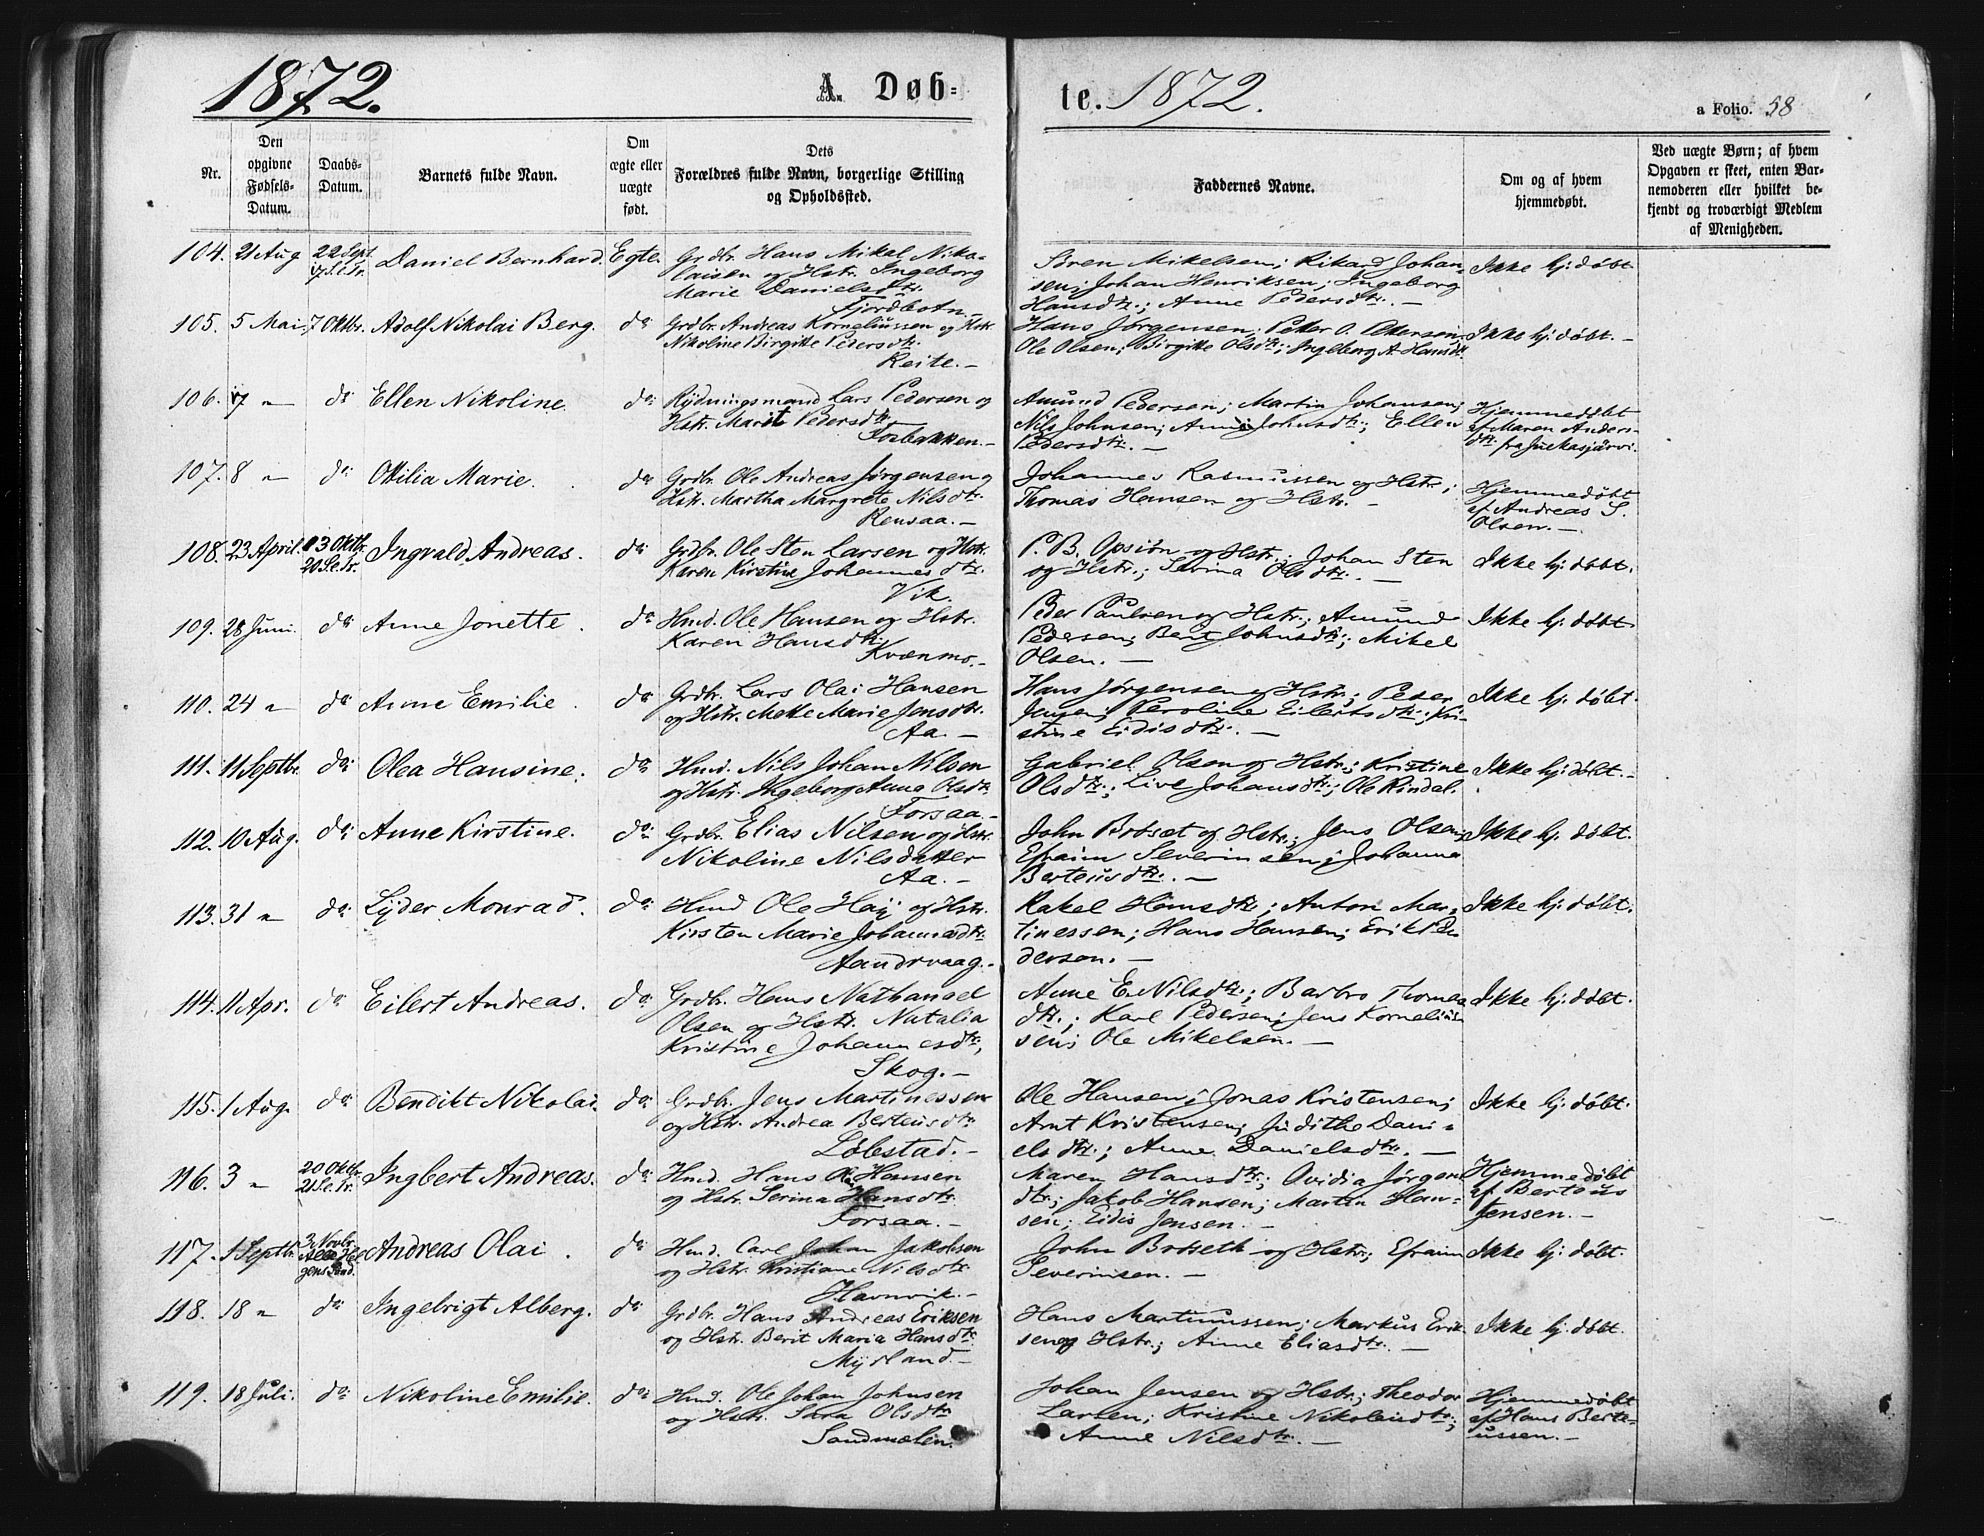 1872. A. Døb-
te. 1872. a Folio. 58
Nr.
Den
opgivne
Fødsels-
Datum.
Daabs-
Datum.
Barnets fulde Navn.
Om
ægte eller
uægte
født.
Dets
Forældres fulde Navn, borgerlige Stilling
og Opholdsted.
Faddernes Navne.
Om og af hvem
hjemmedøbt.
Ved uægte Børn; af hvem
Opgaven er skeet, enten Bar-
nemoderen eller hvilket be-
kjendt og troværdigt Medlem
af Menigheden.
104. 21 Aug 22 Sept. Daniel Bernhard. Egte. Grdbr. Hans Mikal Niko-
laisen og Hstr. Ingeborg
Marie Danielsdtr.
Fjordbotn.
Søren Mikelsen; Rikard Johan-
sen; Johan Henriksen; Ingeborg
Hansdtr.; Anne Pedersdtr. —
Ikke hj. døbt.
105. 5 Mai 7 Oktbr. Adolf Nikolai Berg. do Grdbr. Andreas Korneliussen og Hstr.
Nikoline Birgitte Pedersdtr.
Reite. —
Hans Jørgensen; Peter O. Petersen;
Ole Olsen; Birgitte Olsdtr.; Ingeborg A. Hansdtr.
Ikke hj. døbt. —
106. 17 " do Ellen Nikoline. do Rydningsmand Lars Pedersen og
Hstr. Marit Pedersdtr.
Fosbakken. —
Amund Pedersen; Martin Johansen;
Nils Johnsen; Anne Johnsdtr.; Ellen
Pedersdtr. —
Hjemmedøbt
af Maren Anders-
dtr. fra Jukkasjärvi.
107. 8 " do Otilia Marie. do Grdbr. Ole Andreas Jørgensen og
Hstr. Martha Margrete Nilsdtr.
Rensaa. —
Johannes Rasmussen og Hstr.;
Thomas Hansen og Hstr. —
Hjemmedøbt
af Andreas S.
Olsen. —
108. 23 April. 13 Oktbr.
20 S. e. Tr. Ingvald Andreas. do Grdbr. Ole Sten Larsen og Hstr.
Karen Kirstine Johannesdtr.
Vik.
P. B. Opsiøn og Hstr.; Johan Sten
og Hstr.; Serina Olsdtr. —
Ikke hj. døbt.
109. 28 Juni. do Anne Jonette. do Hmd. Ole Hansen og Hstr.
Karen Hansdtr.
Kvænmo. —
Peder Paulsen og Hstr.; Amund
Pedersen; Berit Johnsdtr.; Mikel
Olsen. —
Ikke hj. døbt.
110. 24 " do Anne Emilie. do Grdbr. Lars Olai Hansen
og Hstr. Mette Marie Jensdtr.
Aa. —
Hans Jørgensen og Hstr.; Peder
Jensen; Karoline Eilertsdtr.; Kri-
stine Eidisdtr. —
Ikke hj. døbt.
111. 11 Septbr. do Olea Hansine. do Hmd. Nils Johan Nilsen
og Hstr. Ingeborg Anna Olsdtr.
Forsaa. —
Gabriel Olsen og Hstr.; Kristine
Olsdtr.; Live Johansdtr.; Ole Rindal.
Ikke hj. døbt. —
112. 10 Aug. do Anne Kirstine. do Grdbr. Elias Nilsen og Hstr.
Nikoline Nilsdatter
Aa. —
John Brøset og Hstr.; Jens Olsen;
Efraim Severinsen; Johanna
Berteusdtr. —
Ikke hj. døbt.
113. 31 " do Lyder Monrad. do Hmd Ole Høij og Hstr.
Kirsten Marie Johannesdtr.
Aandrvaag. —
Rakel Hansdtr.; Anton Mar-
tinessen; Hans Hansen; Erik Pe-
dersen. —
Ikke hj. døbt.
114. 11 Apr. do Eilert Andreas. do Grdbr. Hans Nathanael
Olsen og Hstr. Natalia
Kristine Johannesdtr.,
Skog. —
Anne E. Nilsdtr.; Barbro Thomas
dtr.; Karl Pedersen; Jens Kornelius-
sen; Ole Mikelsen. —
Ikke hj. døbt.
115. 1 Aug. do Bendikt Nikolai. do Grdbr. Jens Martinessen
og Hstr. Andrea Berteusdtr.
Løbstad. —
Ole Hansen; Jonas Kristensen;
Arnt Kristensen; Judithe Dani-
elsdtr.; Anne Danielsdtr. —
Ikke hj. døbt.
116. 3 " 20 Oktbr.
21 S. e. Tr. Ingbert Andreas. do Hmd. Hans Hansen
og Hstr. Serina Hansdtr.
Forsaa. —
Maren Hansdtr.; Ovidia Jørgens
dtr.; Jakob Hansen; Martin Han-
sen; Eidis Jensen. —
Hjemmedøbt
af Berteus
Jensen. —
117. 1 Septbr. 3 Novbr.
Alle Hel-
gens Sønd. Andreas Olai. do Hmd. Carl Johan Jakobsen
og Hstr. Kristiane Nilsdtr.
Havnvik. —
John Brøseth og Hstr.; Efraim
Severinsen. —
Ikke hj. døbt.
118. 18 " do Ingebrigt Alberg. do Grdbr. Hans Andreas Eriksen
og Hstr. Berit Maria Hansdtr.
Myrland. —
Hans Martinussen; Markus Erik-
sen og Hstr.; Anne Eliasdtr. —
Ikke hj. døbt.
119. 18 Juli. do Nikoline Emilie. do Hmd. Ole Johan Johnsen
og Hstr. Sara Olsdtr.
Sandmælen.
Johan Jensen og Hstr.; Theodor
Larsen; Kristine Nikolaisdtr.;
Anne Nilsdtr. —
Hjemmedøbt
af Hans Berte-
ussen. —